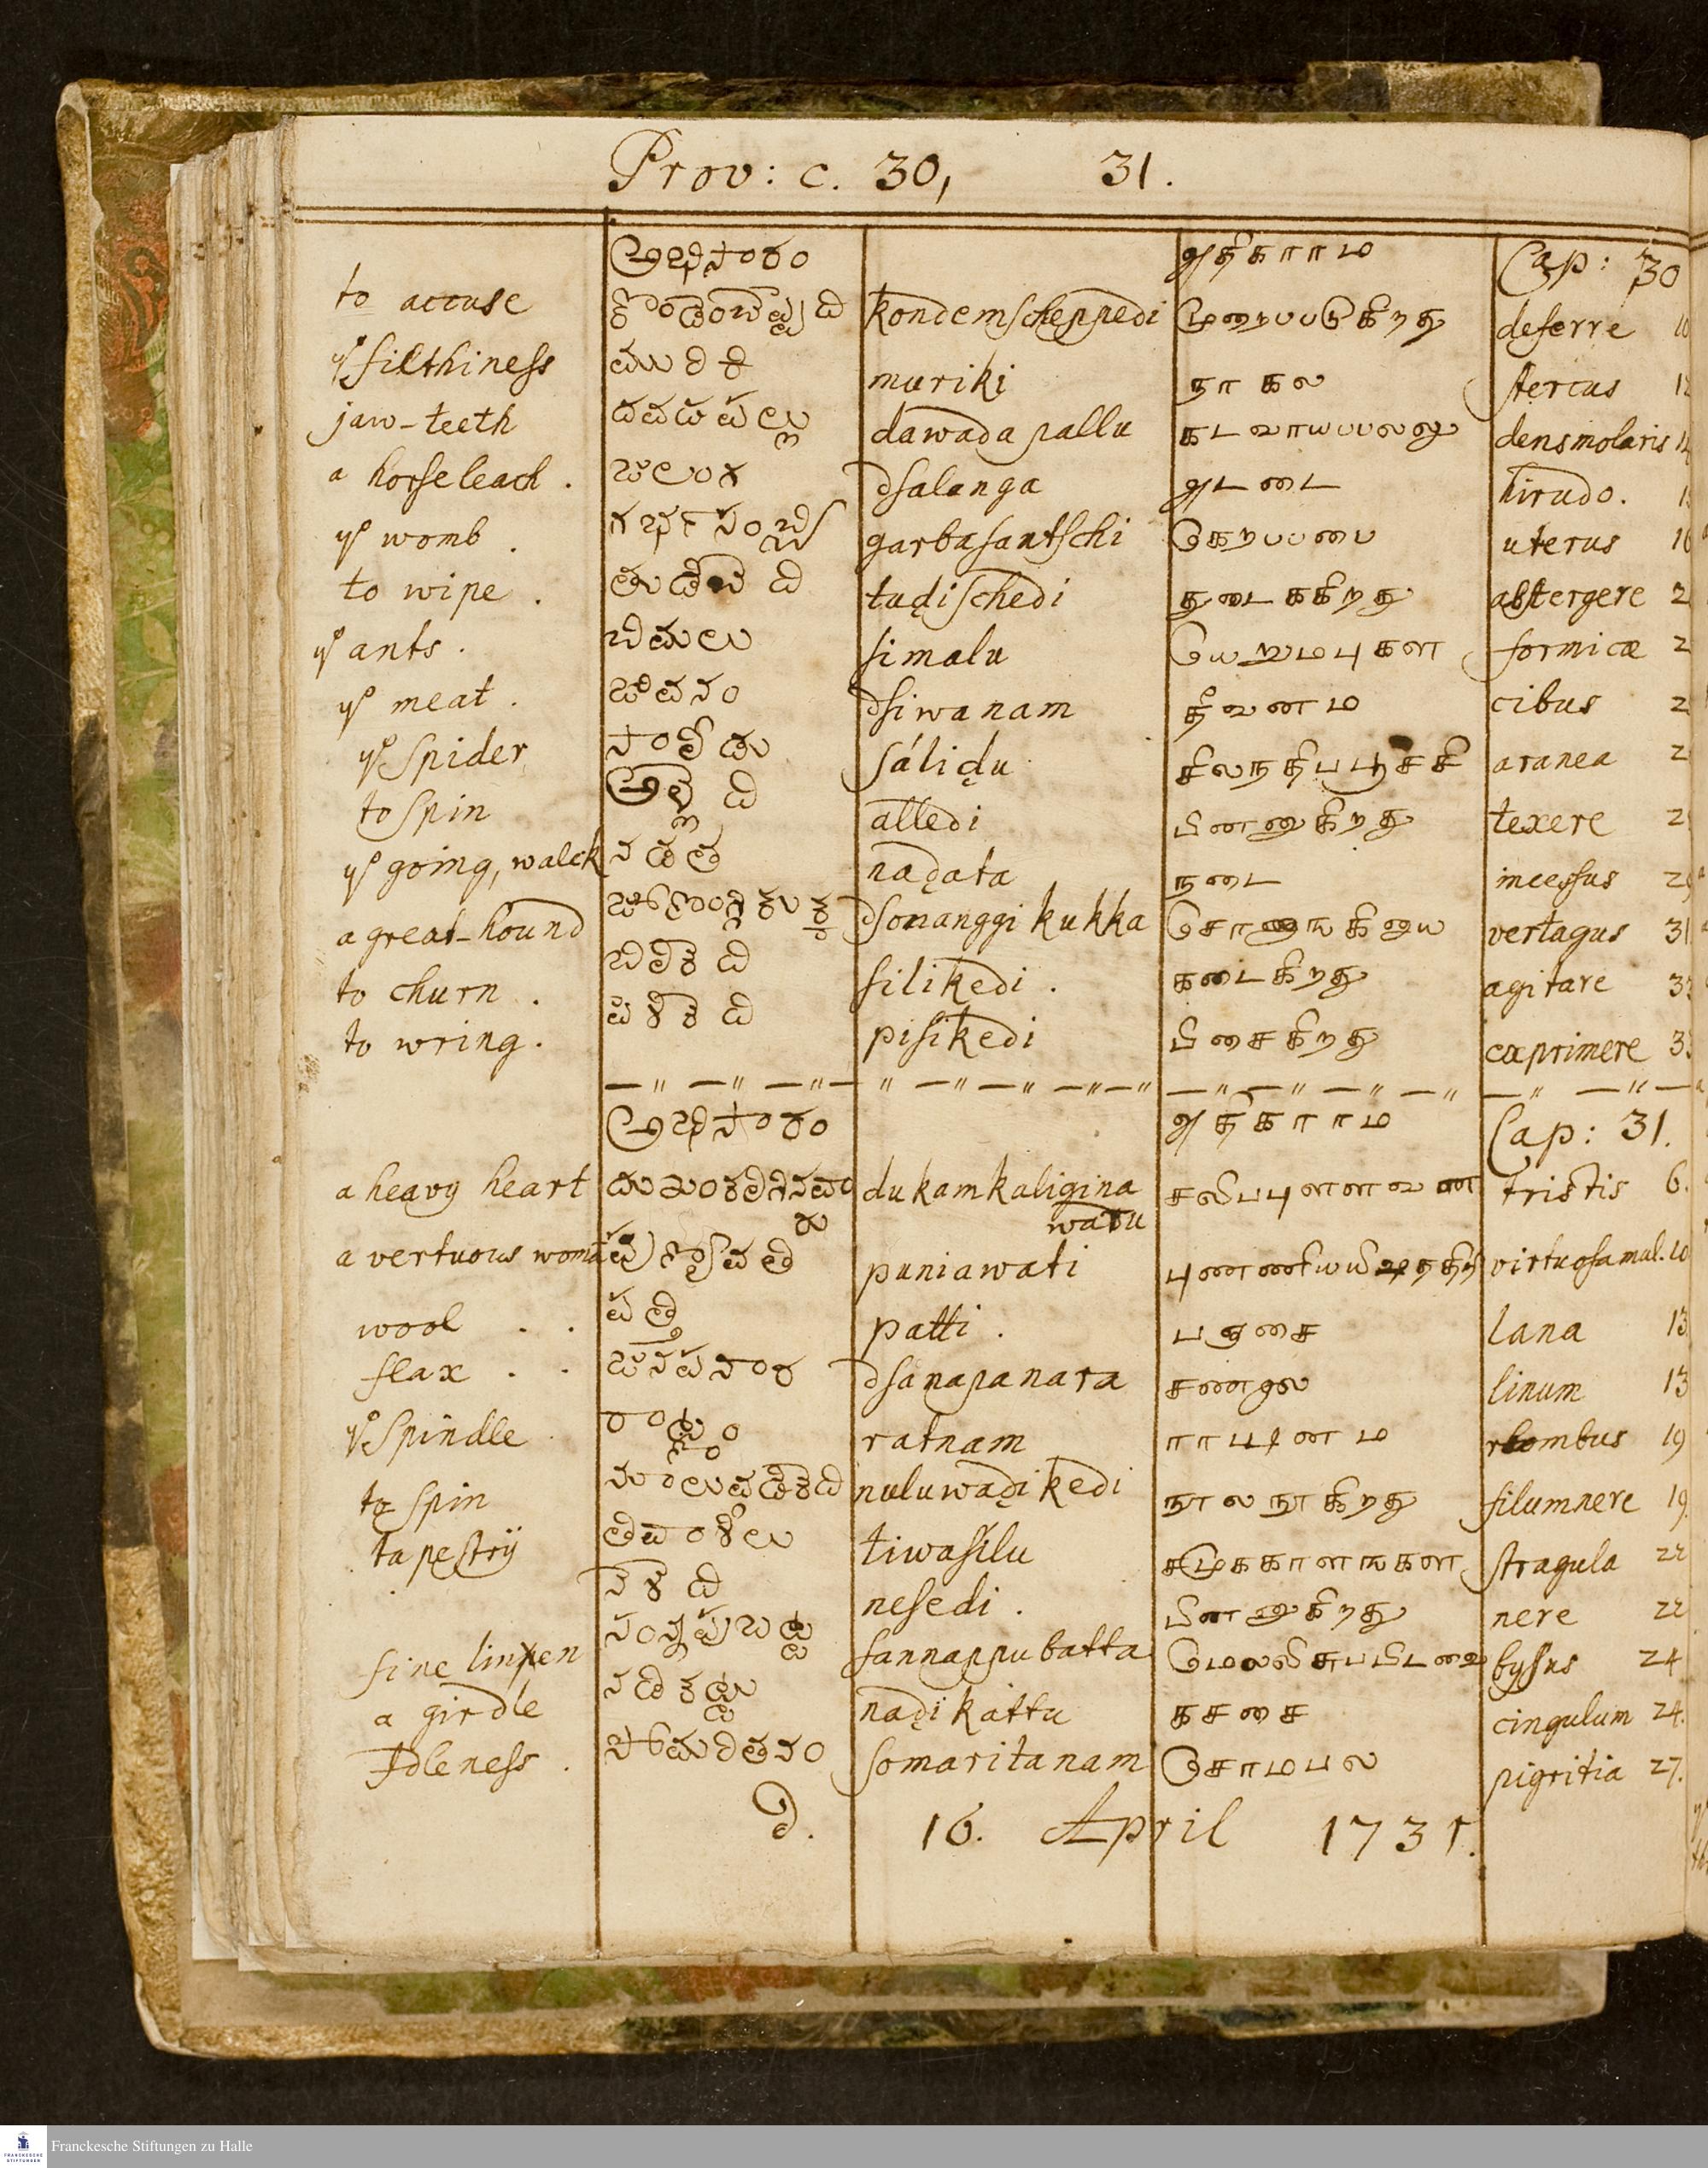 Prov: c. 30, 31.
అధికారం அதிகாரம Cap: 30
to accuse కొండెంచెప్పేది kondemscheppedi முறைபபடுகிறது deferre 10
yͤ filthiness మురికి muriki நரகல stercus 12
jaw-teeth దవడపల్లు dawada pallu கடவாயபபலலு dens molaris 14
a horseleach. జలంగ dsalanga அடடை hirudo.
yͤ womb. గర్భసంచి garbasantschi கெறபபபை uterus 16
to wipe. తుడిచేది tudischedi துடைககிறது abstergere 2
yͤ ants. చిమలు simalu யெறுமபுகள formicæ 2
yͤ meat. జీవనం dsiwanam தீவனம cibus 2
yͤ spider సాలీడు sálidu சிலநதிபபூசசி aranea 2
to spin అల్లేది alledi பினனுகிறது texere 2
yͤ going, walck నడత nadata நடை incessus 29
a great-hound జోనంగ్గికుక్క dsonanggi kukka சோணஙகிநாய vertagus 31
to churn. చిలికేది silikedi. கடைகிறது agitare 33
to wring. పిశికేది pisikedi பிசைகிறது exprimere 33
అధికారం அதிகாரம Cap: 31.
a heavy heart దుఖంకలిగినవారు dukamkaliginawaru சலிபபுளளவன tristis 6.
a vertuous woman పుణ్యవతి puniawati virtuosa mul. 10
wool . . పత్తి patti. பஞசை lana 13
flax . . జనపనార dsanapanara சணல linum 13
yͤ spindle రాట్నం ratnam ராடடினம rhombus 19
to spin నూలువడికేది nuluwadikedi நூலநூகிறது filum nere 19
tapestrÿ తివాశీలు tiwasílu சமுககாளஙகள stragula 22
నేశేది nesedi. பினனுகிறது nere 22
fine linnen సంన్నపుబట్ట sannappu batta byssus 24
a girdle నడికట్టు nadikattu கசசை cingulum 24.
Idleness. సోమరితనం somaritanam சோமபல pigritia 27.
D. 16. April 1731.
Franckesche Stiftungen zu Halle
FRANCKESCHE STIFTUNGEN